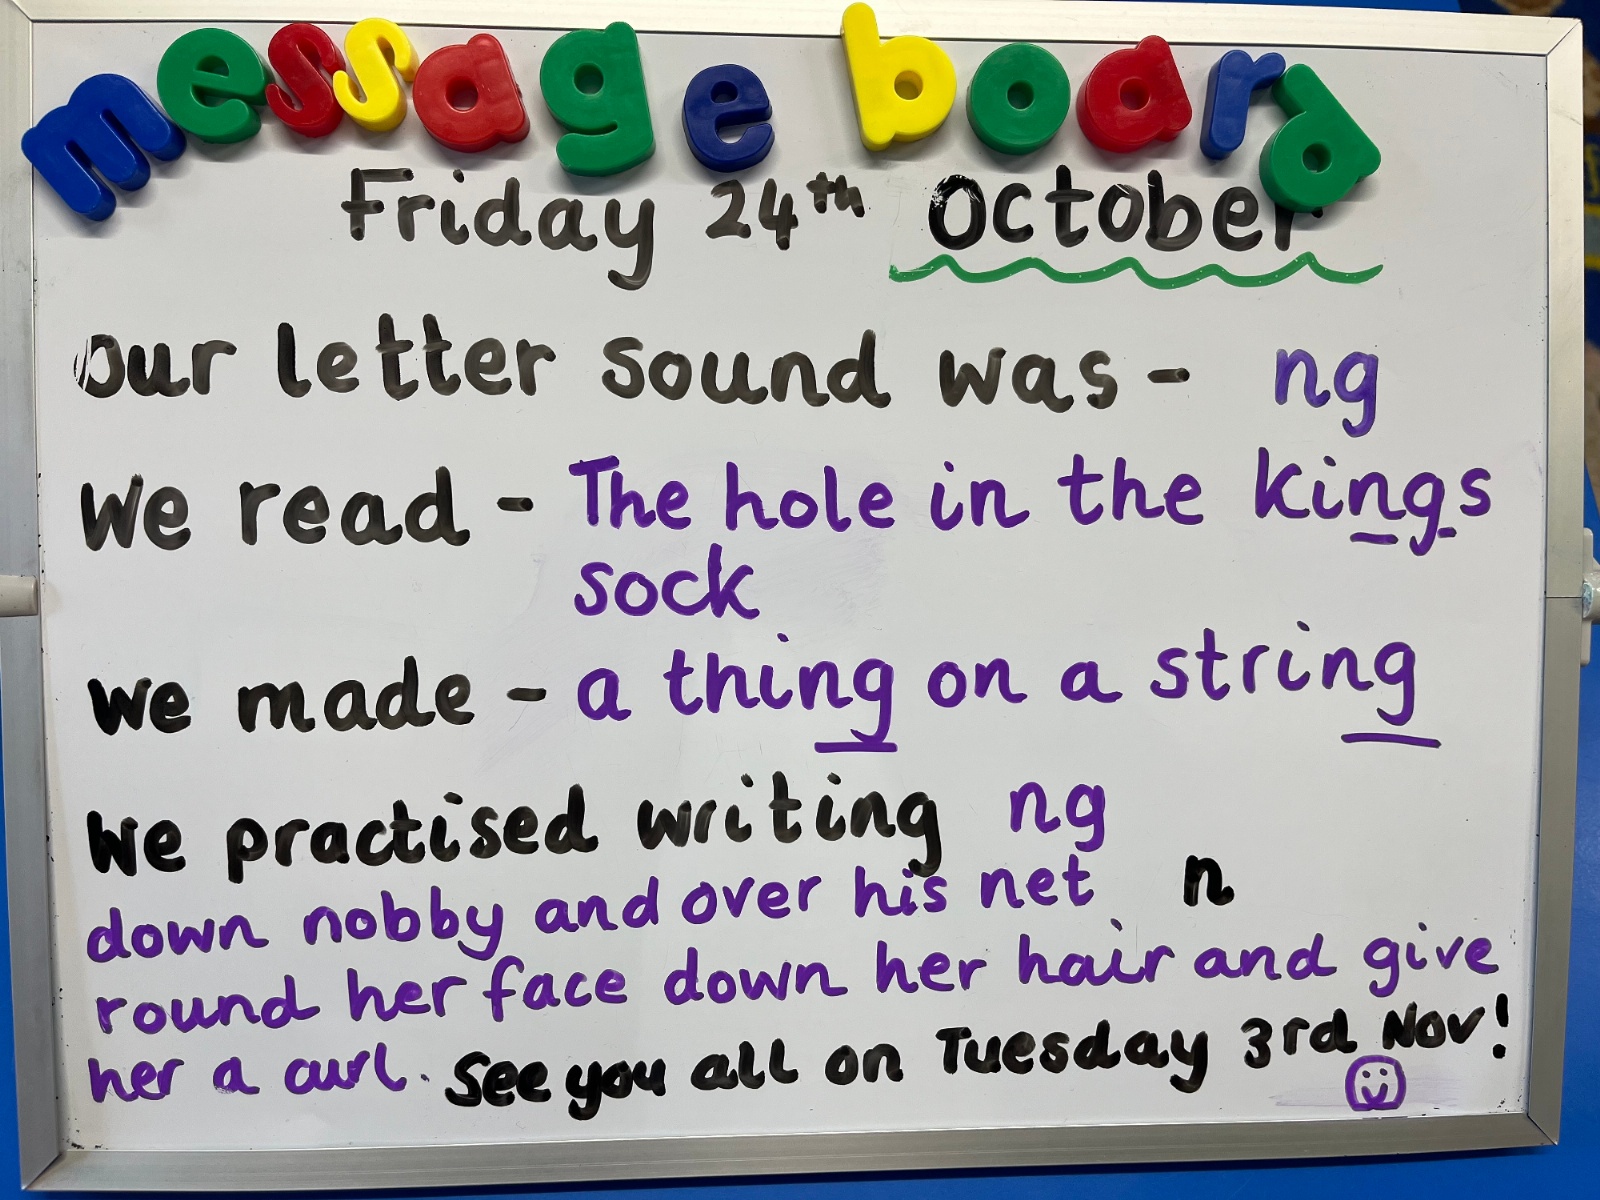 message board
Friday 24th October
Our letter sound was - ng
We read - The hole in the kings
sock
We made - a thing on a string
We practised writing ng
down nobby and over his net n
round her face down her hair and give
her a curl. See you all on Tuesday 3rd Nov!